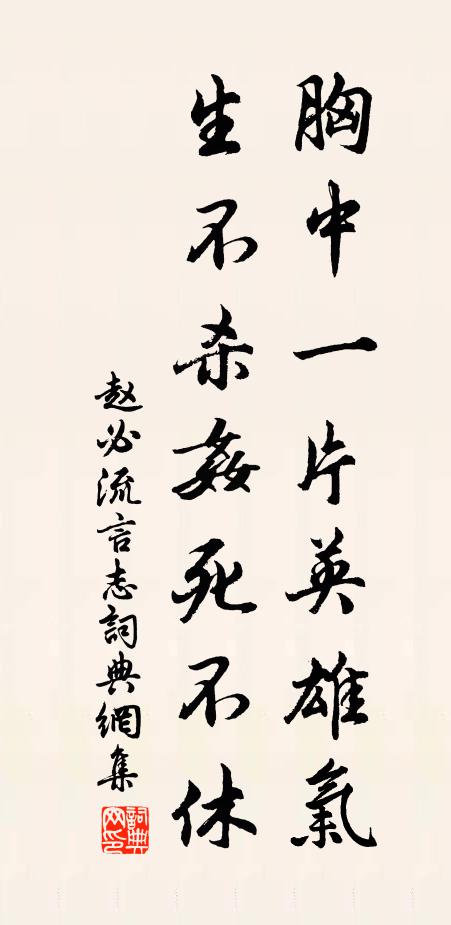 胸中一片英雄氣
生不杀姦死不休
赵必流言志詞典網集
詞典網印